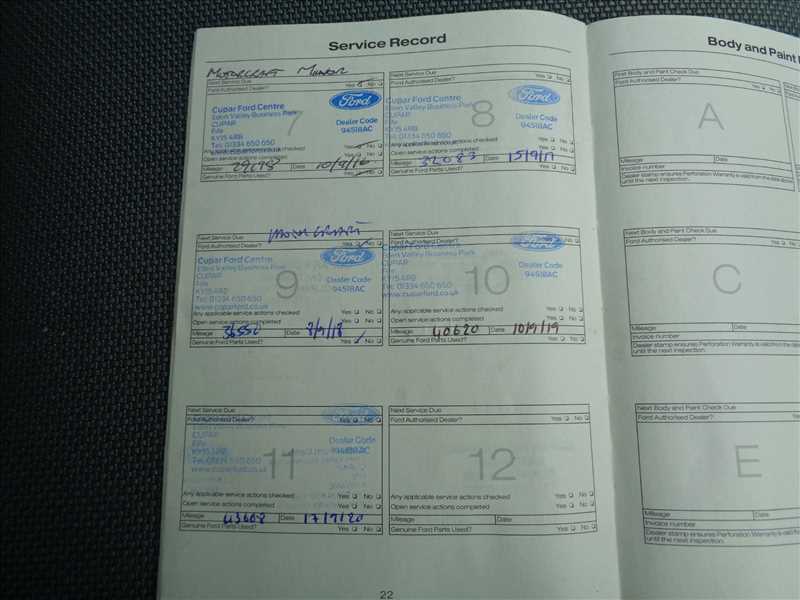 Service Record
MOTORCRAFT
Next Service Due
Ford Authorised Dealer? Yes No
7
Cupar Ford Centre
Eden Valley Business Park
CUPAR
Fife
KY15 4RB
Tel: 01334 650 650
Ford
Dealer Code
94518AC
Any applicable service actions checked Yes No
Open service actions completed Yes No
Mileage Date 10/9/16
Genuine Ford Parts Used? Yes No
Next Service Due Yes No
Ford Authorised Dealer?
8
Cupar Ford Centre
Eden Valley Business Park
CUPAR
Fife
KY15 4RB
Tel: 01334 650 650
www.cuparford.co.uk
Ford
Dealer Code
94518AC
Any applicable service actions checked Yes No
Open service actions completed Yes No
Mileage 32083 Date 15/9/17
Genuine Ford Parts Used? Yes No
Next Service Due
Ford Authorised Dealer? Yes No
9
Cupar Ford Centre
Eden Valley Business Park
CUPAR
Fife
KY15 4RB
Tel: 01334 650 650
www.cuparford.co.uk
Ford
Dealer Code
94518AC
Any applicable service actions checked Yes No
Open service actions completed Yes No
Mileage 36550 Date 8/9/18
Genuine Ford Parts Used? Yes No
Next Service Due
Ford Authorised Dealer? No
10
Cupar Ford Centre
Eden Valley Business Park
CUPAR
Fife
KY15 4RB
Tel: 01334 650 650
www.cuparford.co.uk
Ford
Dealer Code
94518AC
Any applicable service actions checked Yes No
Open service actions completed Yes No
Mileage 40620 Date 10/9/19
Genuine Ford Parts Used? Yes No
Next Service Due
Ford Authorised Dealer? Yes No
11
Eden Valley Business Park
CUPAR
Fife
KY15 4RB
Tel: 01334 650 650
www.cuparford.co.uk
Dealer Code
94518AC
Any applicable service actions checked Yes No
Open service actions completed Yes No
Mileage 43608 Date 17/9/20
Genuine Ford Parts Used? Yes No
Next Service Due
Ford Authorised Dealer? Yes No
12
Any applicable service actions checked Yes No
Open service actions completed Yes No
Mileage Date
Genuine Ford Parts Used? Yes No
22
Body and Paint
First Body and Paint Check Due
Ford Authorised Dealer? Yes No
A
Mileage Date
Invoice number
Dealer stamp ensures Perforation Warranty is valid from the date above
until the next inspection.
Next Body and Paint Check Due
Ford Authorised Dealer? Yes No
C
Mileage Date
Invoice number
Dealer stamp ensures Perforation Warranty is valid from the
until the next inspection.
Next Body and Paint Check Due
Ford Authorised Dealer? Yes
E
Mileage Date
Invoice number
Dealer stamp ensures Perforation Warranty is valid from the
until the next inspection.